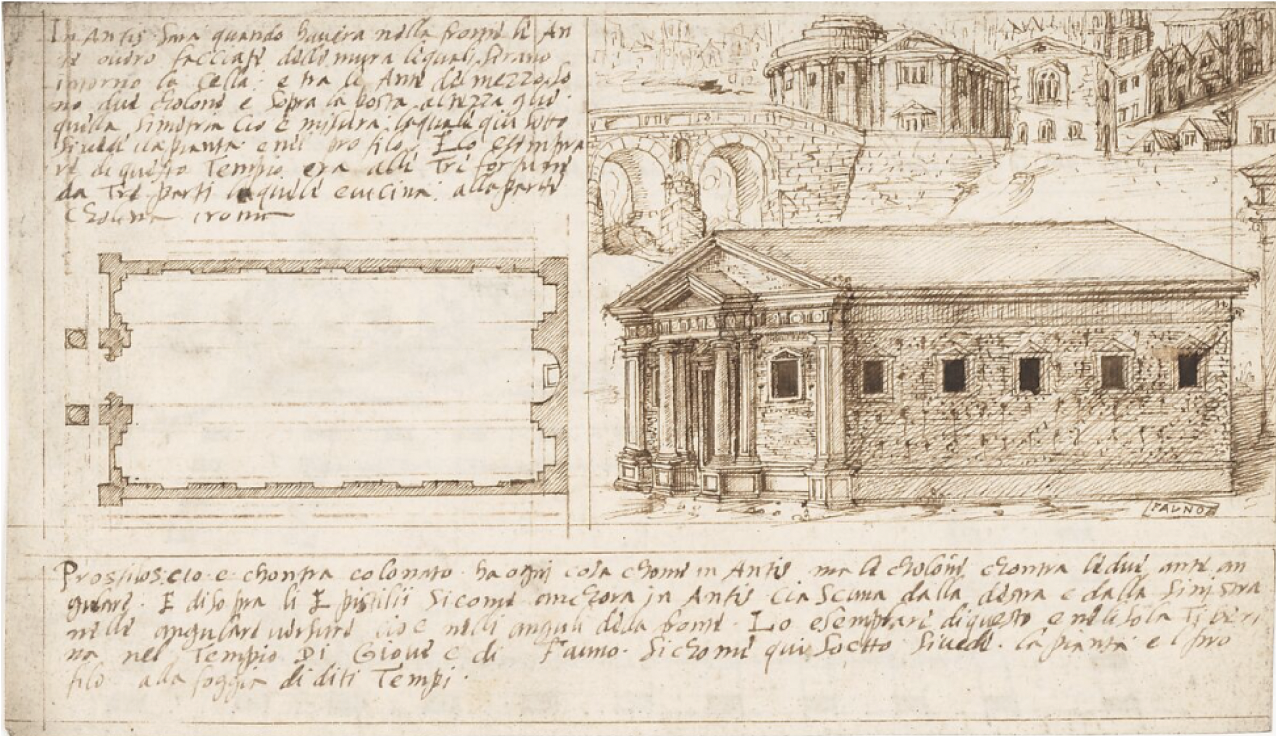 In Antis sara quando havera nella fronte le An
te overo facciate delle mura lequali serano
intorno la Cella: e tra le Ante del mezzo so
no due cholone e sopra la posta altezza
quella simetria cio è misura laquale qui soto
si vede la pianta e nel profilo. Lo esempla
re di questo Tempio era alle Tre fortune
da Tre parti laquale è vicina alla porta
Cholina
FAUNO
Prostilos cio e chontra colonato ha ogni cosa chome in Antis ma le cholone chontra le due ante an
gulare. E di sopra li Epistilii sicome anchora in Antis ciascuna dalla destra e dalla sinistra
nelle angulare versure cio e nelli anguli della fronte. Lo esemplare di questo e nelisola Tiberi
na nel Tempio Di Giove e di Fauno. Sichome qui soctto si vede. la pianta e l pro
filo alla foggia di diti Tempi.